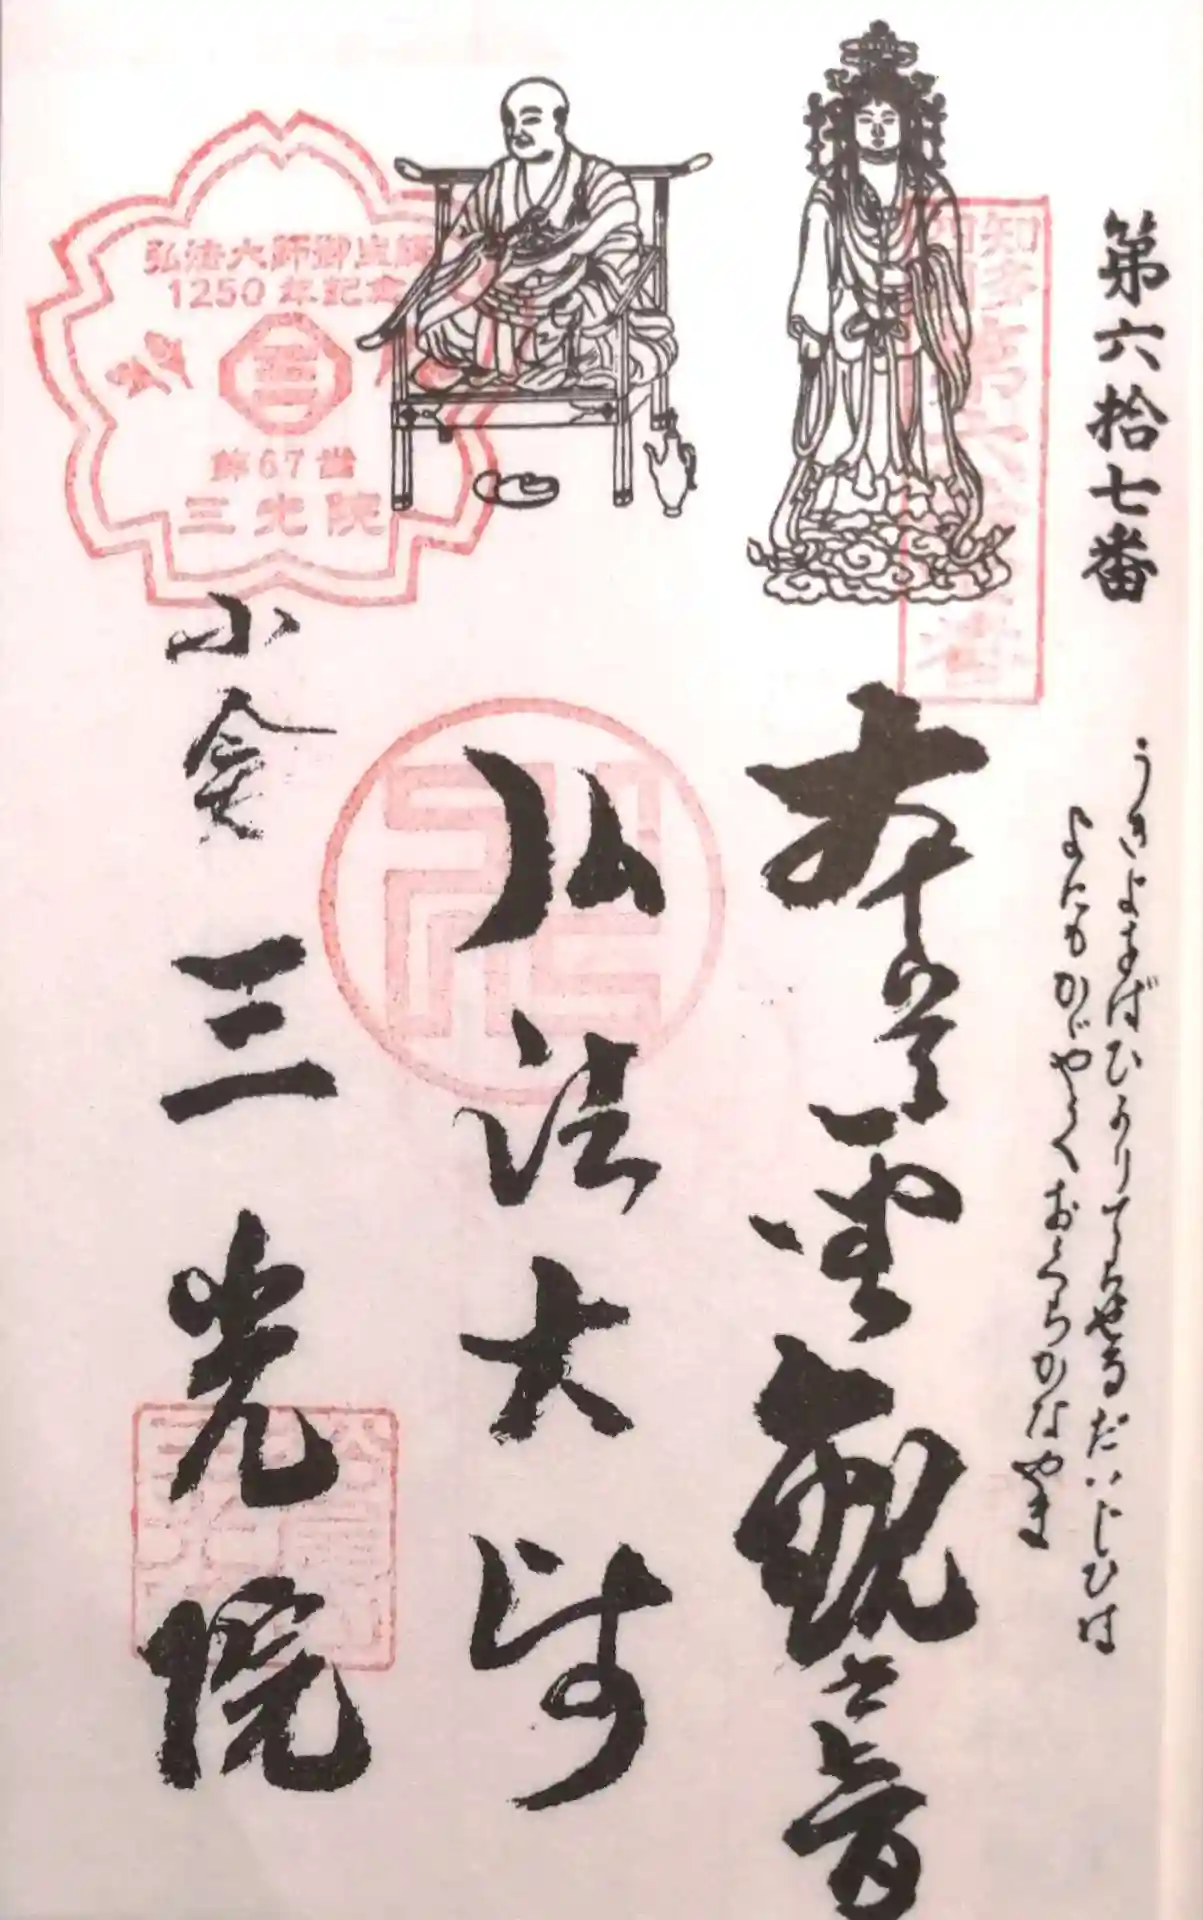 第六拾七番
うきよをばひかりてらせるだいじひは
よにもかゞやくおぐらかなやま
知多四国第六十七番
本尊聖観世音
弘法大師
小倉
三光院
弘法大師御生誕
1250年記念
弘
第67番
三光院